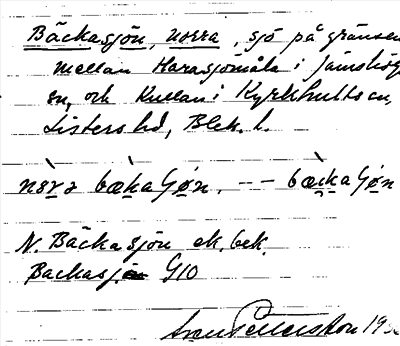 Bäckasjön, norra, sjö på gränsen
mellan Harasjömåla i Jämshög
sn, och Kullan i Kyrkhults sn,
Listers hd, Blek. l.
nòrə bækaʃøn, -- bæckaʃøn
N. Bäckasjön ek. bek.
Backasjön G10
Sven Pettersson 19